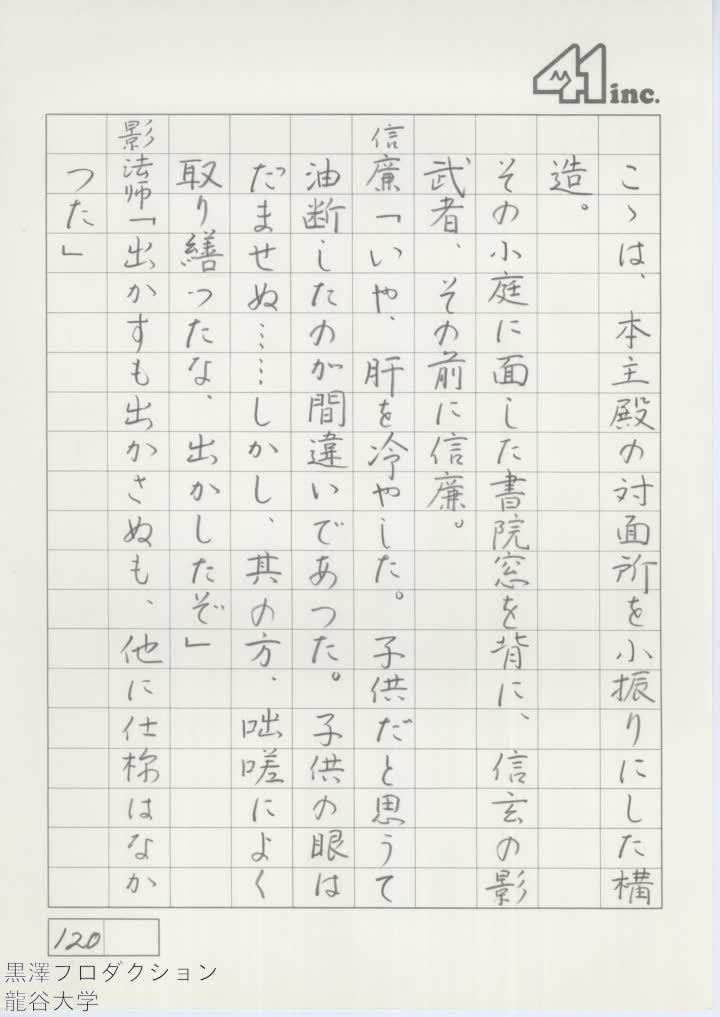 41 inc.
こゝは、本主殿の対面所を小振りにした構
造。
その小庭に面した書院窓を背に、信玄の影
武者、その前に信廉。
信廉「いや、肝を冷やした。子供だと思うて
油断したのが間違いであつた。子供の眼は
だませぬ……しかし、其の方、咄嗟によく
取り繕つたな、出かしたぞ」
影法師「出かすも出かさぬも、他に仕様はなか
つた」
120
黒澤プロダクション
龍谷大学